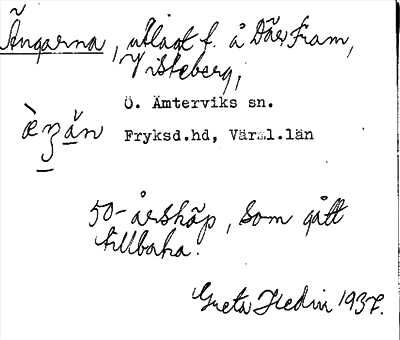 Ängarna, utlagt f. å Där Fram,
Visteberg,
Ö. Ämterviks sn.
Fryksd.hd, Värml.län
50-årshäp, som gått
tillbaka.
Greta Hedin 1937.